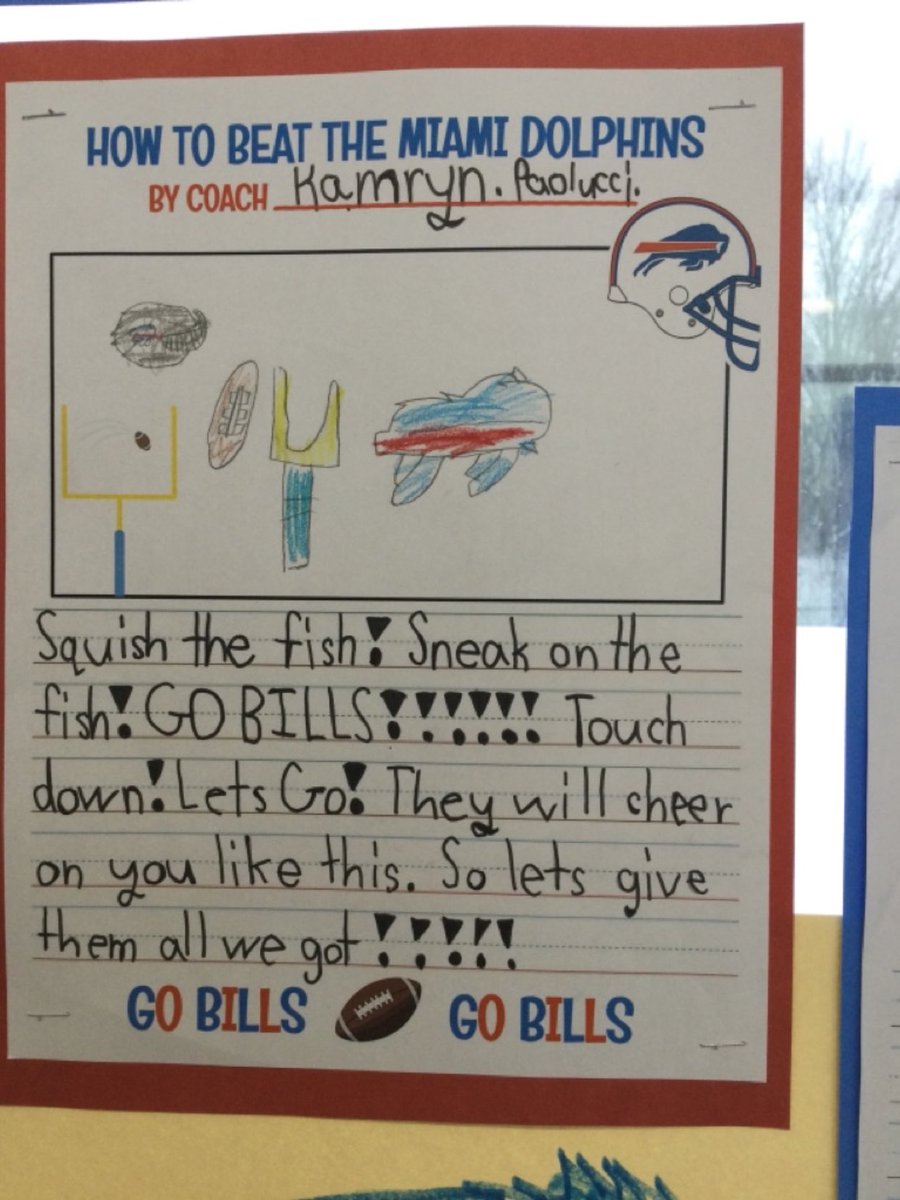 HOW TO BEAT THE MIAMI DOLPHINS
BY COACH Kamryn. Paolucci.
Squish the fish! Sneak on the
fish! GO BILLS!!!!!! Touch
down! Lets Go! They will cheer
on you like this. So lets give
them all we got !!!!!
GO BILLS GO BILLS